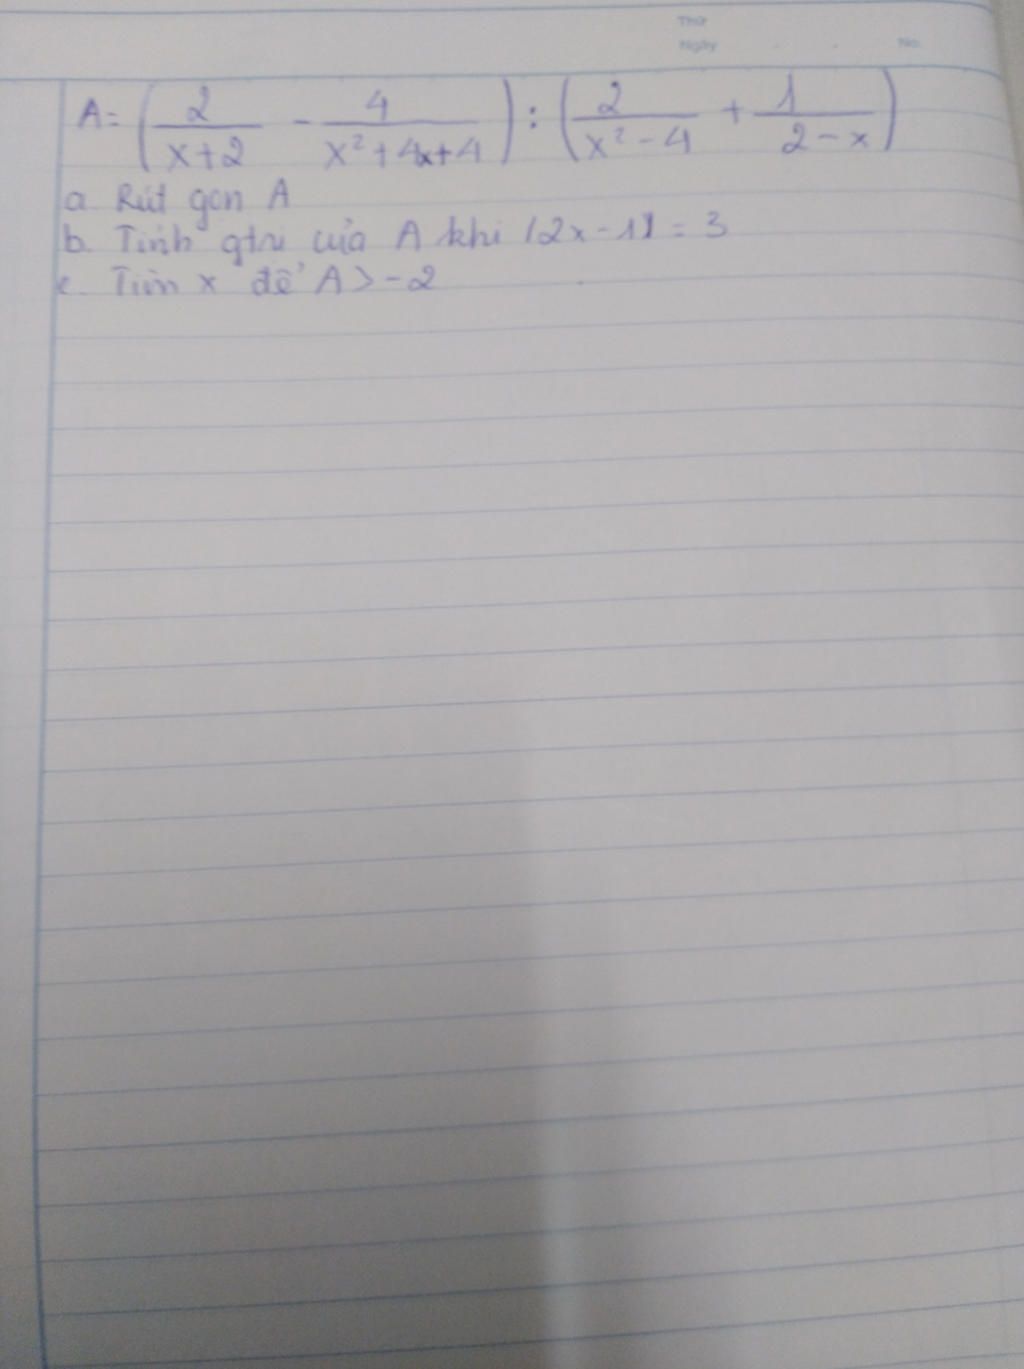 Thứ
Ngày . . No.
A = (2/(x+2) - 4/(x²+4x+4)) : (2/(x²-4) + 1/(2-x))
a. Rút gọn A
b. Tính gtrị của A khi |2x-1| = 3
c. Tìm x để A > -2